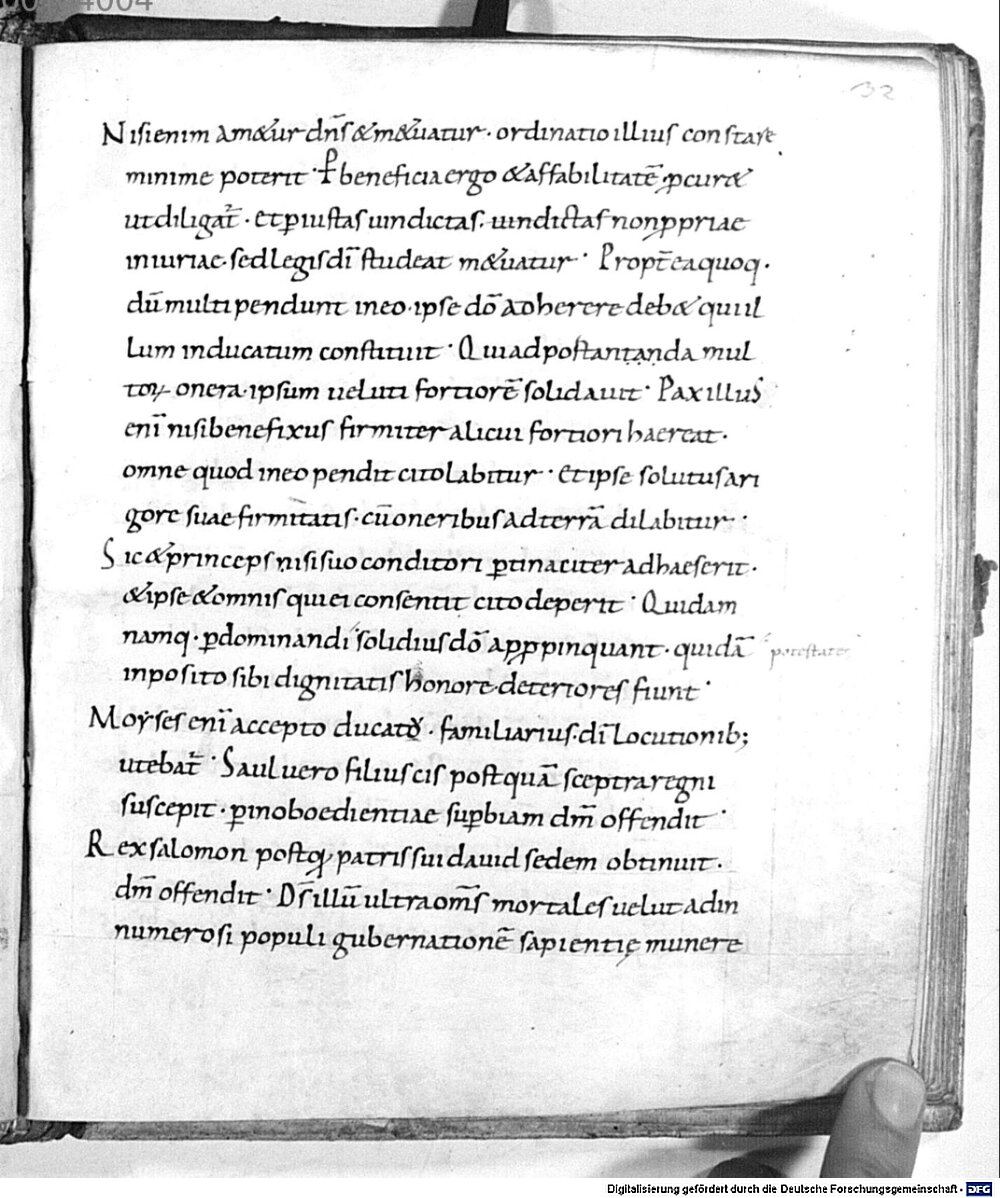 32
Nisienim am&ur dn̄s & m&uatur · ordinatio illius constare
minime poterit · P̄ beneficia ergo & affabilitatē ꝓcur&
ut diligat̄ · Et ꝑ iustas uindictas · uindictas non ꝓpriae
iniuriae · sed legis dī studeat m&uatur · Propt̄ea quoq·
dū multi pendunt in eo · ipse dō adherere deb& qui il
lum in ducatum constituit · Qui ad postantanda mul
toꝝ onera · ipsum ueluti fortiorē solidauit · Paxillus
enī nisi bene fixus firmiter alicui fortiori haereat ·
omne quod in eo pendit cito labitur · Et ipse solutus a ri
gore suae firmitatis · cū oneribus ad terrā dilabitur ·
Sic & princeps nisi suo conditori ꝑtinaciter adhaeserit ·
& ipse & omnis qui ei consentit cito deperit · Quidam
namq· ꝑ dominandi solidius dō appropinquant · quidā potestatem
inposito sibi dignitatis honore deteriores fiunt ·
Moyses enī accepto ducatu · familiarius dī locutionib;
utebat̄ · Saul uero filius cis postquā sceptra regni
suscepit · ꝑ inoboedientiae suꝑbiam dm̄ offendit ·
Rex salomon postq̄ patris sui dauid sedem obtinuit ·
dm̄ offendit · Ds̄ illū ultra om̄s mortales uelut ad in
numerosi populi gubernationē sapientię munere
Digitalisierung gefördert durch die Deutsche Forschungsgemeinschaft - DFG